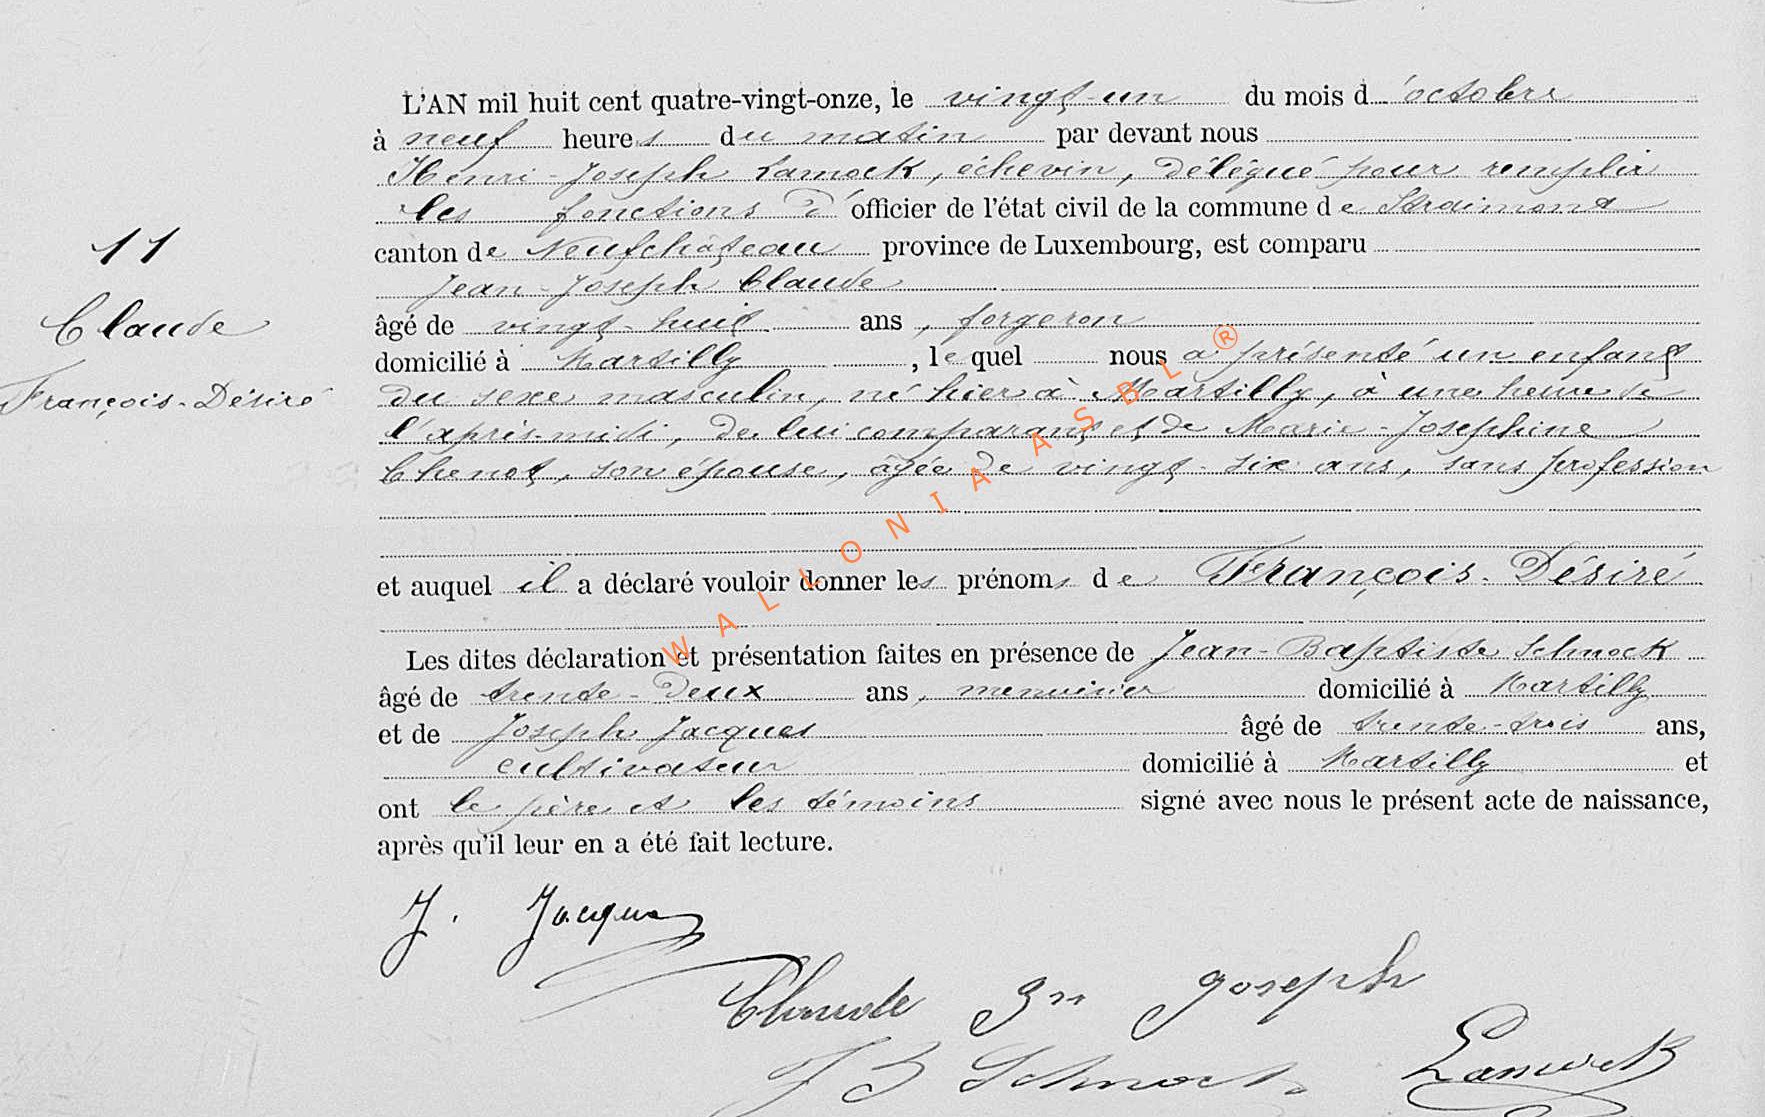 L'AN mil huit cent quatre-vingt-onze, le vingt-un du mois d'octobre
à neuf heures du matin par devant nous
Henri-Joseph Lamock, échevin, délégué pour remplir
les fonctions d'officier de l'état civil de la commune de Straimont
11
canton de Neufchâteau province de Luxembourg, est comparu
Jean-Joseph Claude
Claude
âgé de vingt-huit ans, forgeron
domicilié à Martilly, lequel nous a présenté un enfant
François-Désiré
du sexe masculin, né hier à Martilly, à une heure de
l'après-midi, de lui comparant et de Marie-Joséphine
Chenot, son épouse, âgée de vingt-six ans, sans profession
et auquel il a déclaré vouloir donner les prénoms de François-Désiré
Les dites déclaration et présentation faites en présence de Jean-Baptiste Schmock
âgé de trente-deux ans, menuisier domicilié à Martilly
et de Joseph Jacques âgé de trente-trois ans,
cultivateur domicilié à Martilly et
ont le père et les témoins signé avec nous le présent acte de naissance,
après qu'il leur en a été fait lecture.
J. Jacques
Claude Jn Joseph
J B Schmock
WALLONIA ASBL ®